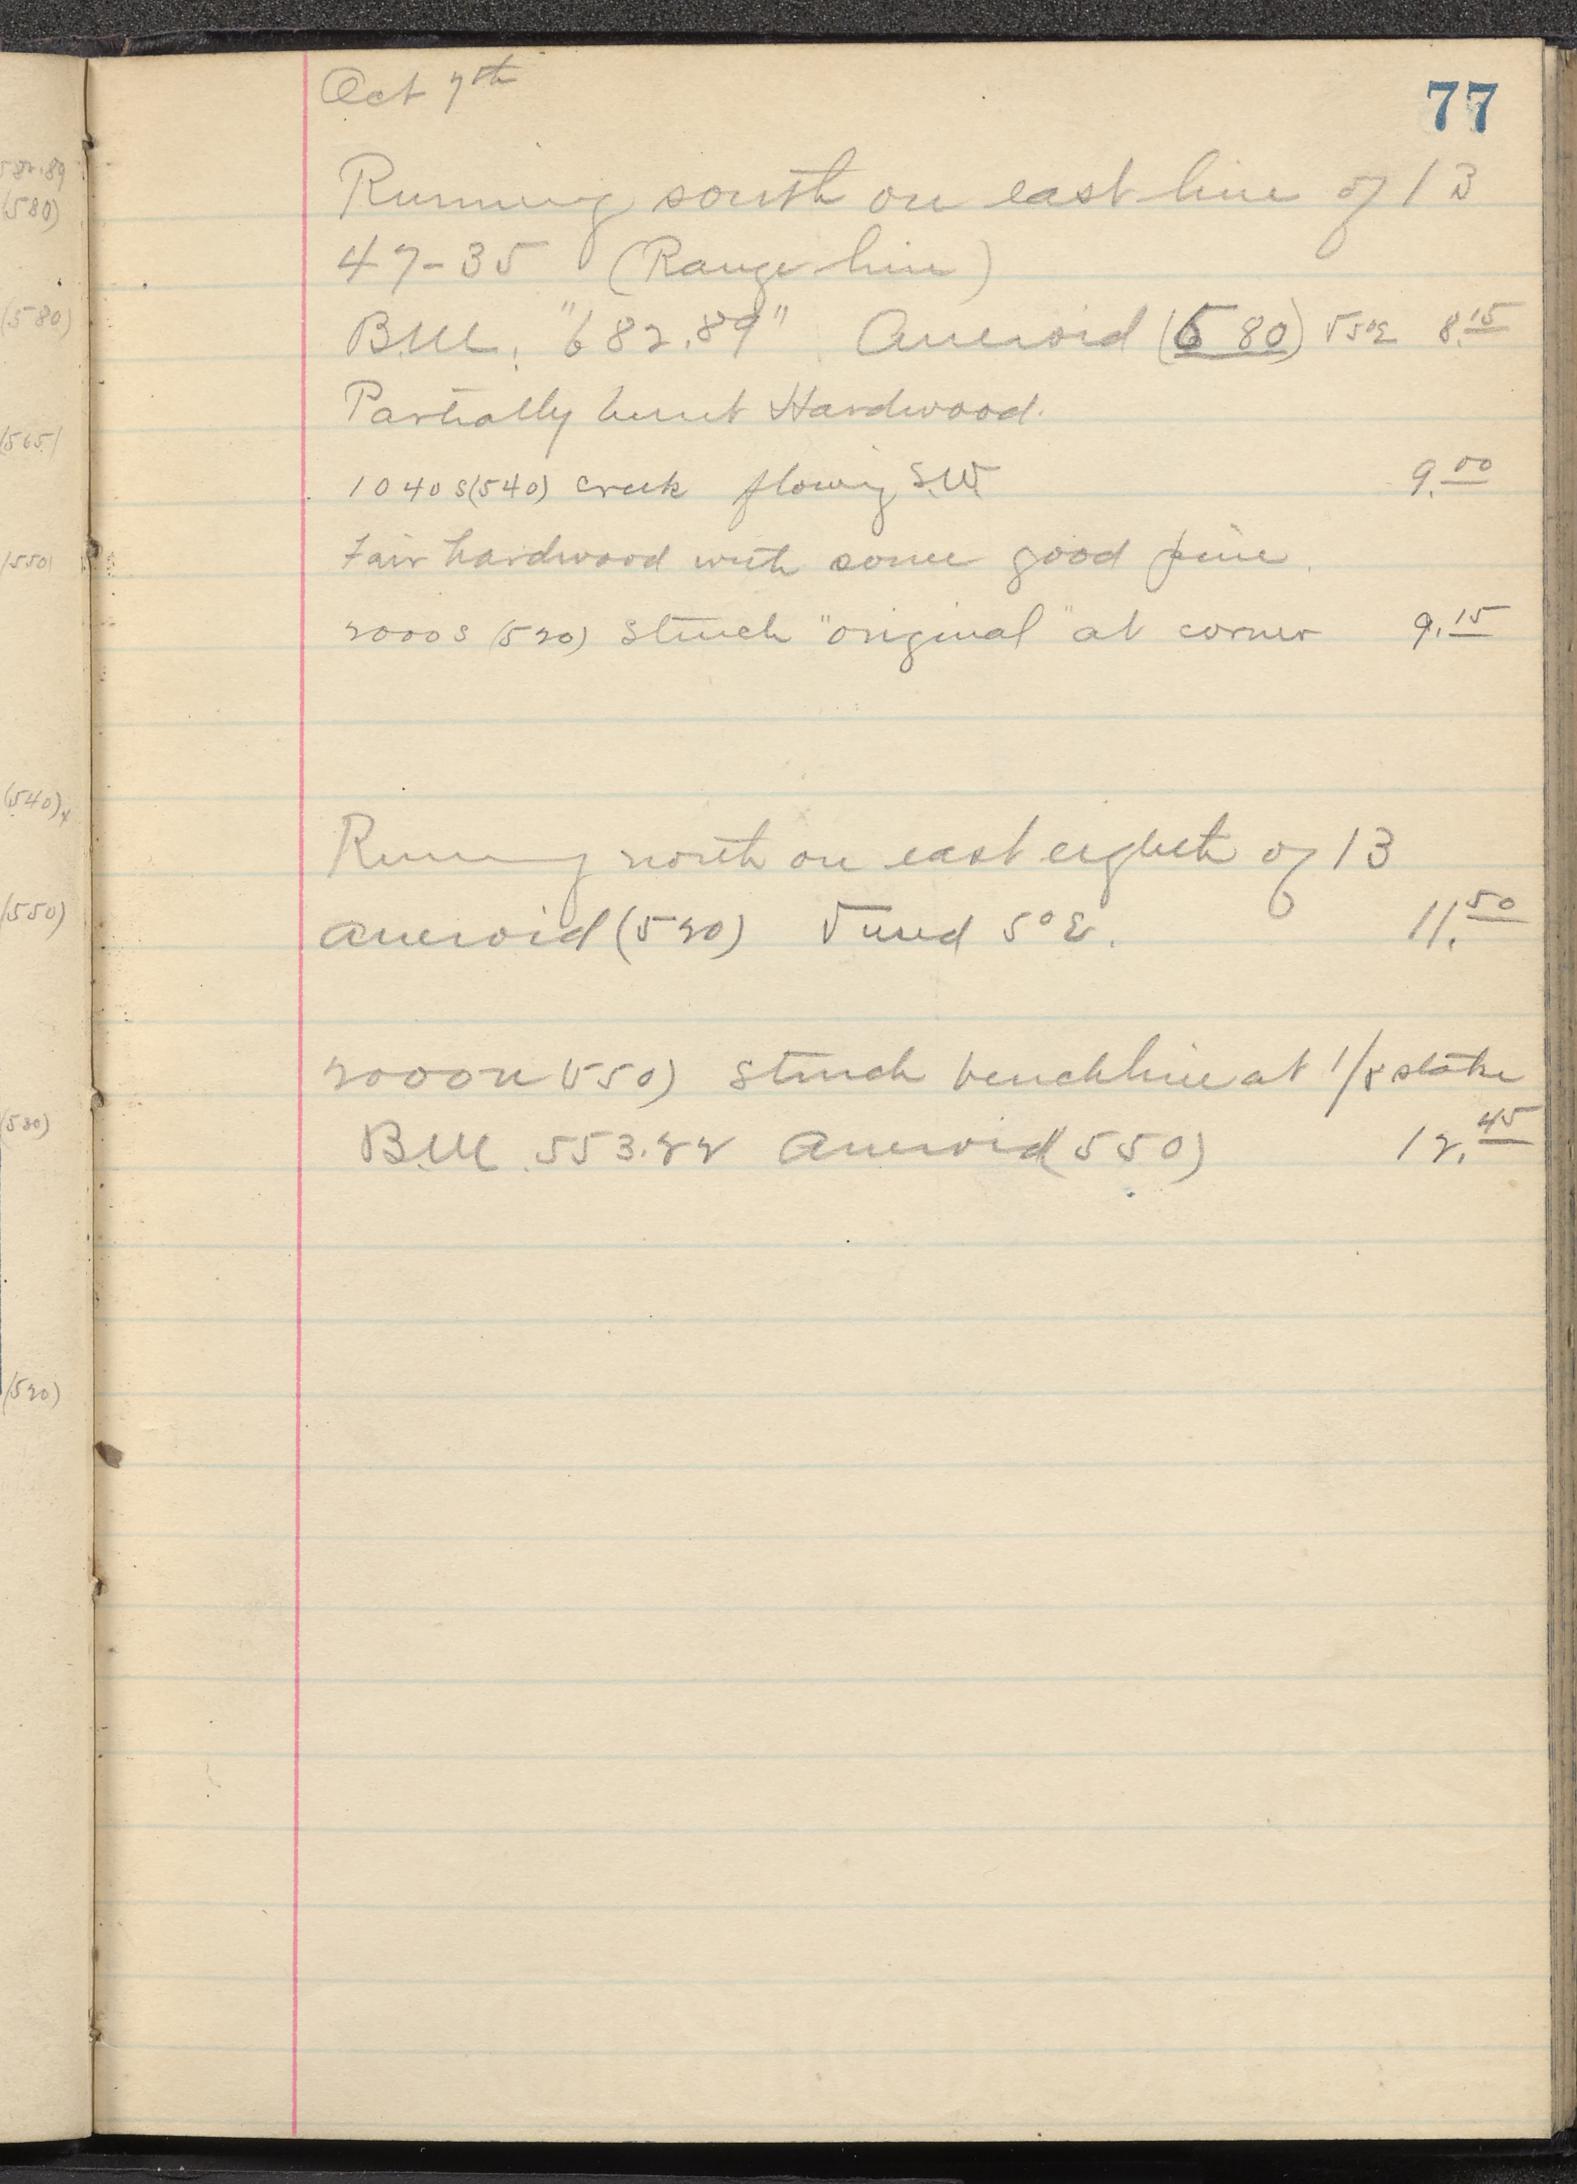 582.89
(580)
(580)
(565)
(550)
(540)x
(550)
(530)
(520)
77
Oct 7th
Running south on east line of 13
47-35 (Range line)
B.M. "682.89" Aneroid (680) V 5°E 8.15
Partially burnt Hardwood.
1040 S (540) creek flowing S.W. 9.00
Fair hardwood with some good pine.
2000 S (520) Struck "original" at corner 9.15
Running north on east eighth of 13
Aneroid (520) V used 5°E. 11.50
2000 N (550) Struck benchline at 1/8 stake
B.M. 553.22 Aneroid (550) 12.45